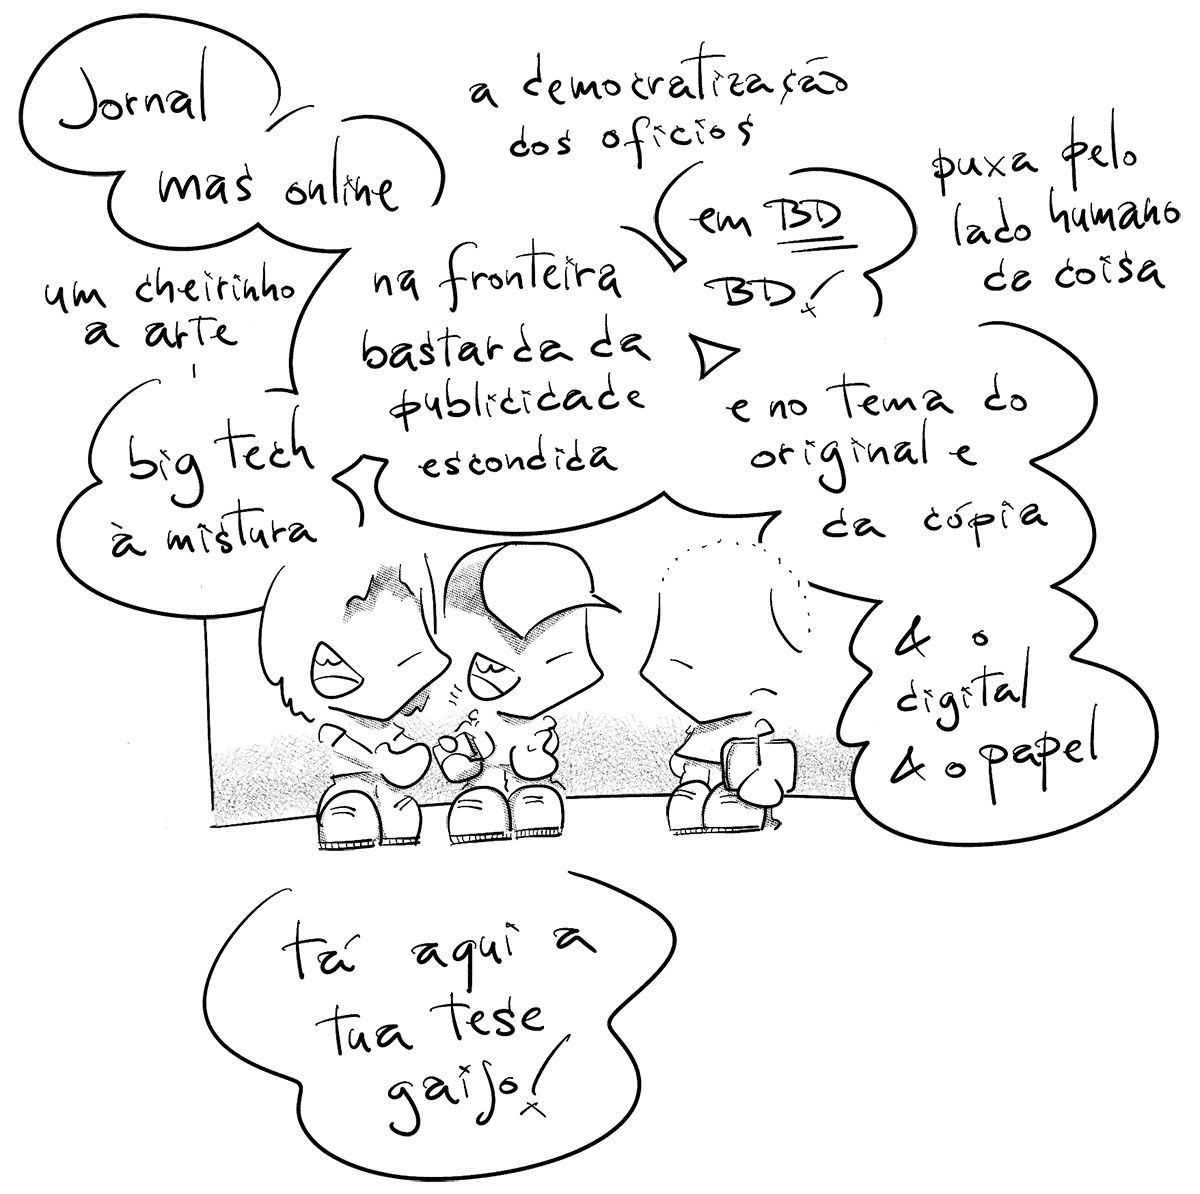 Jornal
mas online
a democratização
dos ofícios
em BD
BD!
puxa pelo
lado humano
da coisa
um cheirinho
a arte
na fronteira
bastarda da
publicidade
escondida
big tech
à mistura
e no tema do
original e
da cópia
& o
digital
& o papel
tá aqui a
tua tese
gaijo!